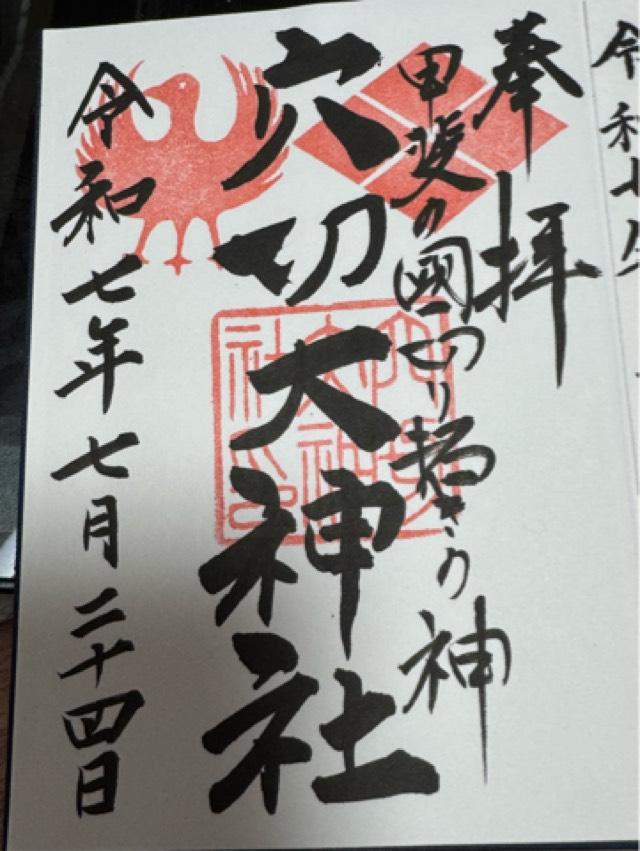 令和七年
奉拝
甲斐の國 きの神
穴切大神社
穴切
大神
社之印
令和七年七月二十四日